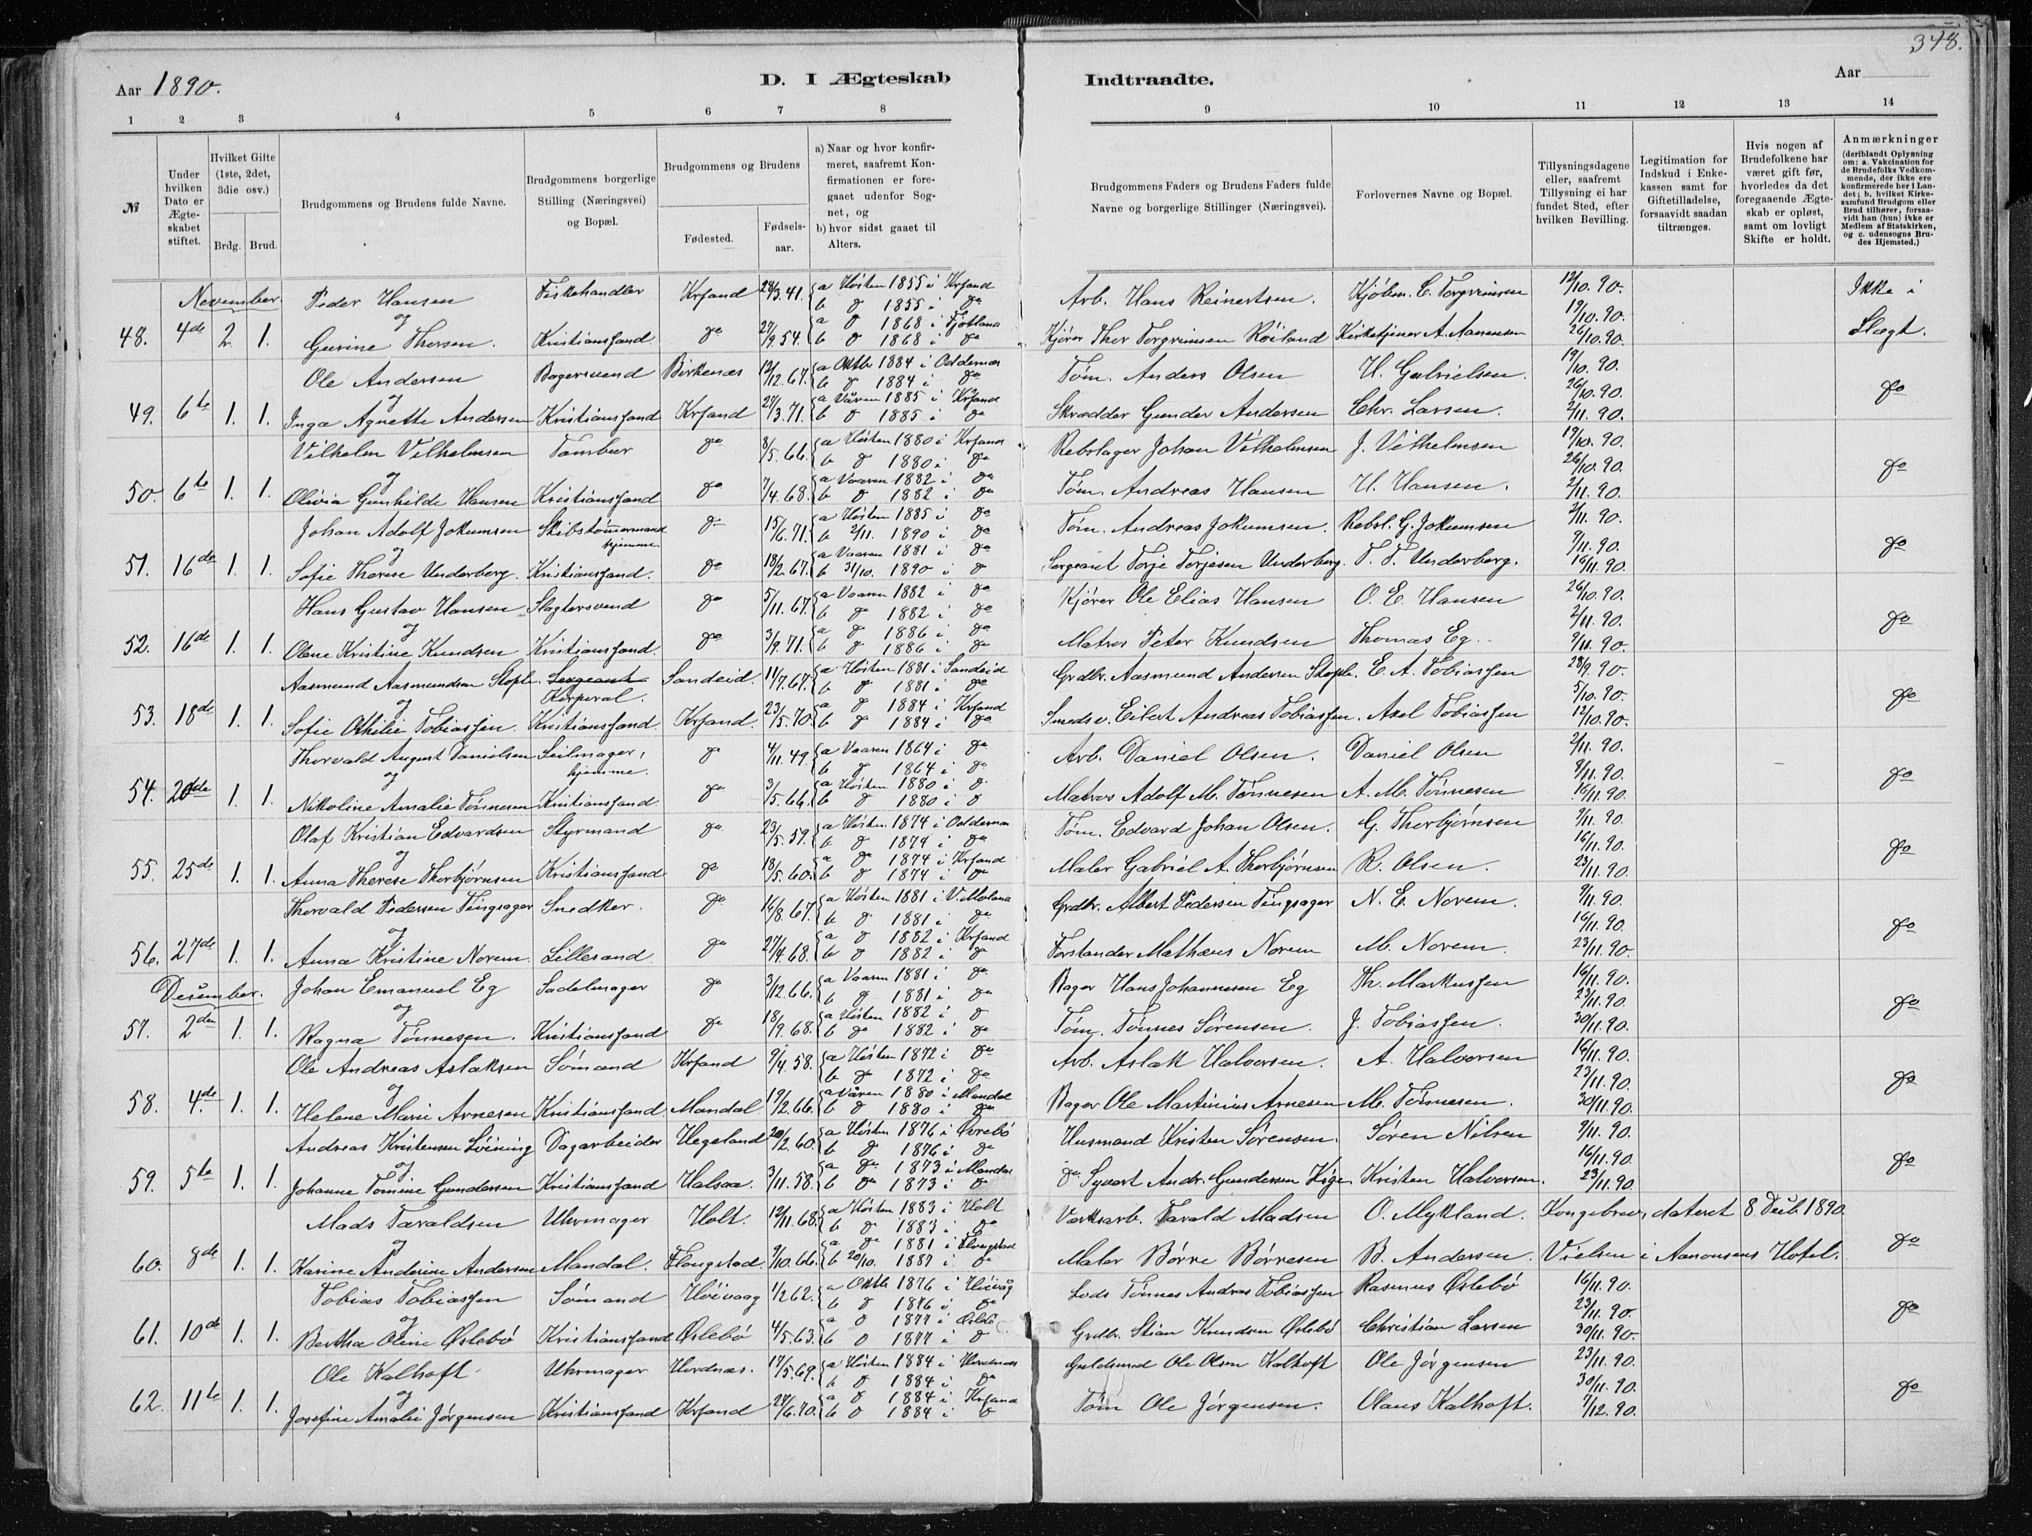 348.
Aar 1890. D. I Ægteskab Indtraadte. Aar
1 2 3 4 5 6 7 8 9 10 11 12 13 14
№
Under hvilken Dato er Ægteskabet stiftet.
Hvilket Gifte (1ste, 2det, 3die osv.)
Brdg. Brud.
Brudgommens og Brudens fulde Navne.
Brudgommens borgerlige Stilling (Næringsvei) og Bopæl.
Brudgommens og Brudens
Fødested. Fødselsaar.
a) Naar og hvor konfirmeret, saafremt Konfirmationen er foregaaet udenfor Sognet, og
b) hvor sidst gaaet til Alters.
Brudgommens Faders og Brudens Faders fulde Navne og borgerlige Stillinger (Næringsvei).
Forlovernes Navne og Bopæl.
Tillysningsdagene eller, saafremt Tillysning ei har fundet Sted, efter hvilken Bevilling.
Legitimation for Indskud i Enkekassen samt for Giftetilladelse, forsaavidt saadan tiltrænges.
Hvis nogen af Brudefolkene har været gift før, hvorledes da det foregaaende Ægteskab er opløst, samt om lovligt Skifte er holdt.
Anmærkninger
(deriblandt Oplysning om: a. Vakcination for de Brudefolks Vedkommende, der ikke ere konfirmerede her i Landet; b. hvilket Kirkesamfund Brudgom eller Brud tilhører, forsaavidt han (hun) ikke er Medlem af Statskirken, og c. udensogns Brudes Hjemsted.)
November. Peder Hansen Fiskehandler Krsand 28/3.41. a Høsten 1855 i Krsand b do 1855 i do Arb. Hans Reinertsen Kjøbm. C. Torgrimsen 12/10.90. Ikke i
og 19/10.90.
48. 4de 2 1. Gurine Thorsen. Kristianssand do 27/9.54. a do 1868 i Fjotland b do 1868 i do Kjører Thor Torgrimsen Røiland Kirketjener A. Aanensen 26/10.90. Slægt.
Ole Andersen Bagersvend Birkenæs 12/12.67. a Oktbr 1884 i Oddernæs b do 1884 i do Tøm. Anders Olsen H. Gabrielsen. 19/10.90.
og 26/10.90. do
49. 6te 1. 1. Inga Agnette Andersen Kristianssand Krsand 27/3.71. a Våren 1885 i Krsand b do 1885 i do Skrædder Gunder Andersen Chr. Larsen. 2/11.90.
Vilhelm Vilhelmsen Tambur do 8/5.66. a Høsten 1880 i Krsand b do 1880 i do Rebslager Johan Vilhelmsen J. Vilhelmsen 19/10.90.
og 26/10.90. do
50. 6te 1. 1. Olivia Gunhilde Hansen Kristianssand do 7/4.68. a Vaaren 1882 i do b do 1882 i do Tøm. Andreas Hansen H. Hansen. 2/11.90.
Johan Adolf Jokumsen Skibstømmermand hjemme do 15/6.71. a Høsten 1885 i do b 2/11. 1890 i do Tøm. Andreas Jokumsen Rebsl. G. Jokumsen 2/11.90.
og 9/11.90. do
51. 16de 1. 1. Sofie Therese Underberg. Kristianssand. do 18/2.67. a Vaaren 1881 i do b 31/10. 1890 i do Sergeant Torje Torjesen Underberg. T. T. Underberg. 16/11.90.
Hans Gustav Hansen Slagtersvend do 5/11.67. a Vaaren 1882 i do b do 1882 i do Kjører Ole Elias Hansen O. E. Hansen 26/10.90.
og 2/11.90. do
52. 16de 1. 1. Olene Kristine Knudsen Kristianssand. do 3/9.71. a do 1886 i do b do 1886 i do Matros Peter Knudsen Thomas Eg. 9/11.90.
Aasmund Aasmundsen Stople. Sergeant Korporal. Sandeid. 11/7.67. a Høsten 1881 i Sandeid b do 1881 i do Grdbr. Aasmund Andersen Stople. E. A. Tobiassen 28/9.90.
og 5/10.90. do
53. 18de 1. 1. Sofie Othilie Tobiassen Kristianssand Krsand. 23/5.70. a do 1884 i Krsand b do 1884 i do Smedsv. Eilert Andreas Tobiassen. Axel Tobiassen 12/10.90.
Thorvald August Danielsen Seilmager, hjemme. do 4/11.49. a Vaaren 1864 i do b do 1864 i do Arb. Daniel Olsen. Daniel Olsen 2/11.90.
og 9/11.90. do
54. 20de 1. 1. Nikoline Amalie Tønnesen Kristianssand. do 3/5.66. a Høsten 1880 i do b do 1880 i do Matros Adolf M. Tønnesen A. M. Tønnesen 16/11.90.
Olaf Kristian Edvardsen Styrmand do 23/5.59. a Høsten 1874 i Oddernæs b do 1874 i do Tøm. Edvard Johan Olsen. G. Thorbjørnsen 9/11.90.
og 16/11.90. do
55. 25de 1. 1. Anna Therese Thorbjørnsen Kristianssand do 18/5.60. a do 1874 i Krsand b do 1874 i do Maler Gabriel A. Thorbjørnsen R. Olsen. 23/11.90.
Thorvald Pedersen Tingsager Snedker. do 16/8.67. a Høsten 1881 i V. Moland b do 1881 i do Grdbr. Albert Pedersen Tingsager N. E. Norem. 9/11.90.
og 16/11.90. do
56. 27de 1. 1. Anna Kristine Norem. Lillesand. do 27/4.68. a do 1882 i Krsand b do 1882 i do Forstander Mathæus Norem M. Norem. 23/11.90.
Desember. Johan Emanuel Eg Sadelmager do 3/12.66. a Vaaren 1881 i do b do 1881 i do Bager Hans Johannesen Eg Th. Markussen 16/11.90.
og 23/11.90. do
57. 2den 1. 1. Ragna Tønnesen. Kristianssand do 18/9.68. a Høsten 1882 i do b do 1882 i do Tøm. Tønnes Sørensen. J. Tobiassen. 30/11.90.
Ole Andreas Aslaksen Sømand Krsand 9/4.58. a Høsten 1872 i do b do 1872 i do Arb. Aslak Halvorsen. A. Halvorsen 16/11.90.
og 23/11.90. do
58. 4de 1. 1. Helene Marie Arnesen Kristianssand Mandal 19/2.66. a Våren 1880 i Mandal b do 1880 i do Bager Ole Martinius Arnesen M. Tønnesen. 30/11.90.
Andreas Kristensen Løining Dagarbeider Hegeland 20/2.60. a Høsten 1876 i Øvrebø b do 1876 i do Husmand Kristen Sørensen. Søren Nilsen 9/11.90.
og 16/11.90. do
59. 5te 1. 1. Johanne Tomine Gundersen Kristianssand Halsaa. 3/11.58. a do 1873 i Mandal b do 1873 i do do Syvert Andr. Gundersen Kige. Kristen Halvorsen. 23/11.90.
Mads Taraldsen Uhrmager Holt. 12/11.68. a Høsten 1883 i Holt b do 1883 i do Værksarb. Tarald Madsen O. Mykland. Kongebrev, dateret 8 Decb. 1890.
og do
60. 8de 1. 1. Karine Andrine Andersen Mandal. Flongstad. 9/10.66. a do 1881 i Flongstad b 20/10. 1887 i do Maler Børre Børresen B. Andersen. Vielsen i Aanonsens Hotel.
Tobias Tobiassen Sømand Høivaag 1/2.62. a Oktbr 1876 i Høivåg b do 1876 i do Lods Tønnes Andreas Tobiassen Rasmus Øslebø 16/11.90.
og 23/11.90. do
61. 10de 1. 1. Bertha Oline Øslebø Kristianssand Øslebø 4/5.63. a do 1877 i Øslebø b do 1877 i do Grdbr. Stian Knudsen Øslebø Christian Larsen 30/11.90.
Ole Kalhoft Uhrmager Herdnæs. 17/5.69. a Høsten 1884 i b do 1884 i do Guldsmed Ole Olsen Kalhoft Ole Jørgensen 23/11.90.
og 30/11.90. do
62. 11te 1. 1. Josefine Amalie Jørgensen Kristianssand Krsand 27/6.70. a do 1884 i Krsand b do 1884 i do Tøm Ole Jørgensen. Olaus Kalhoft. 7/12.90.